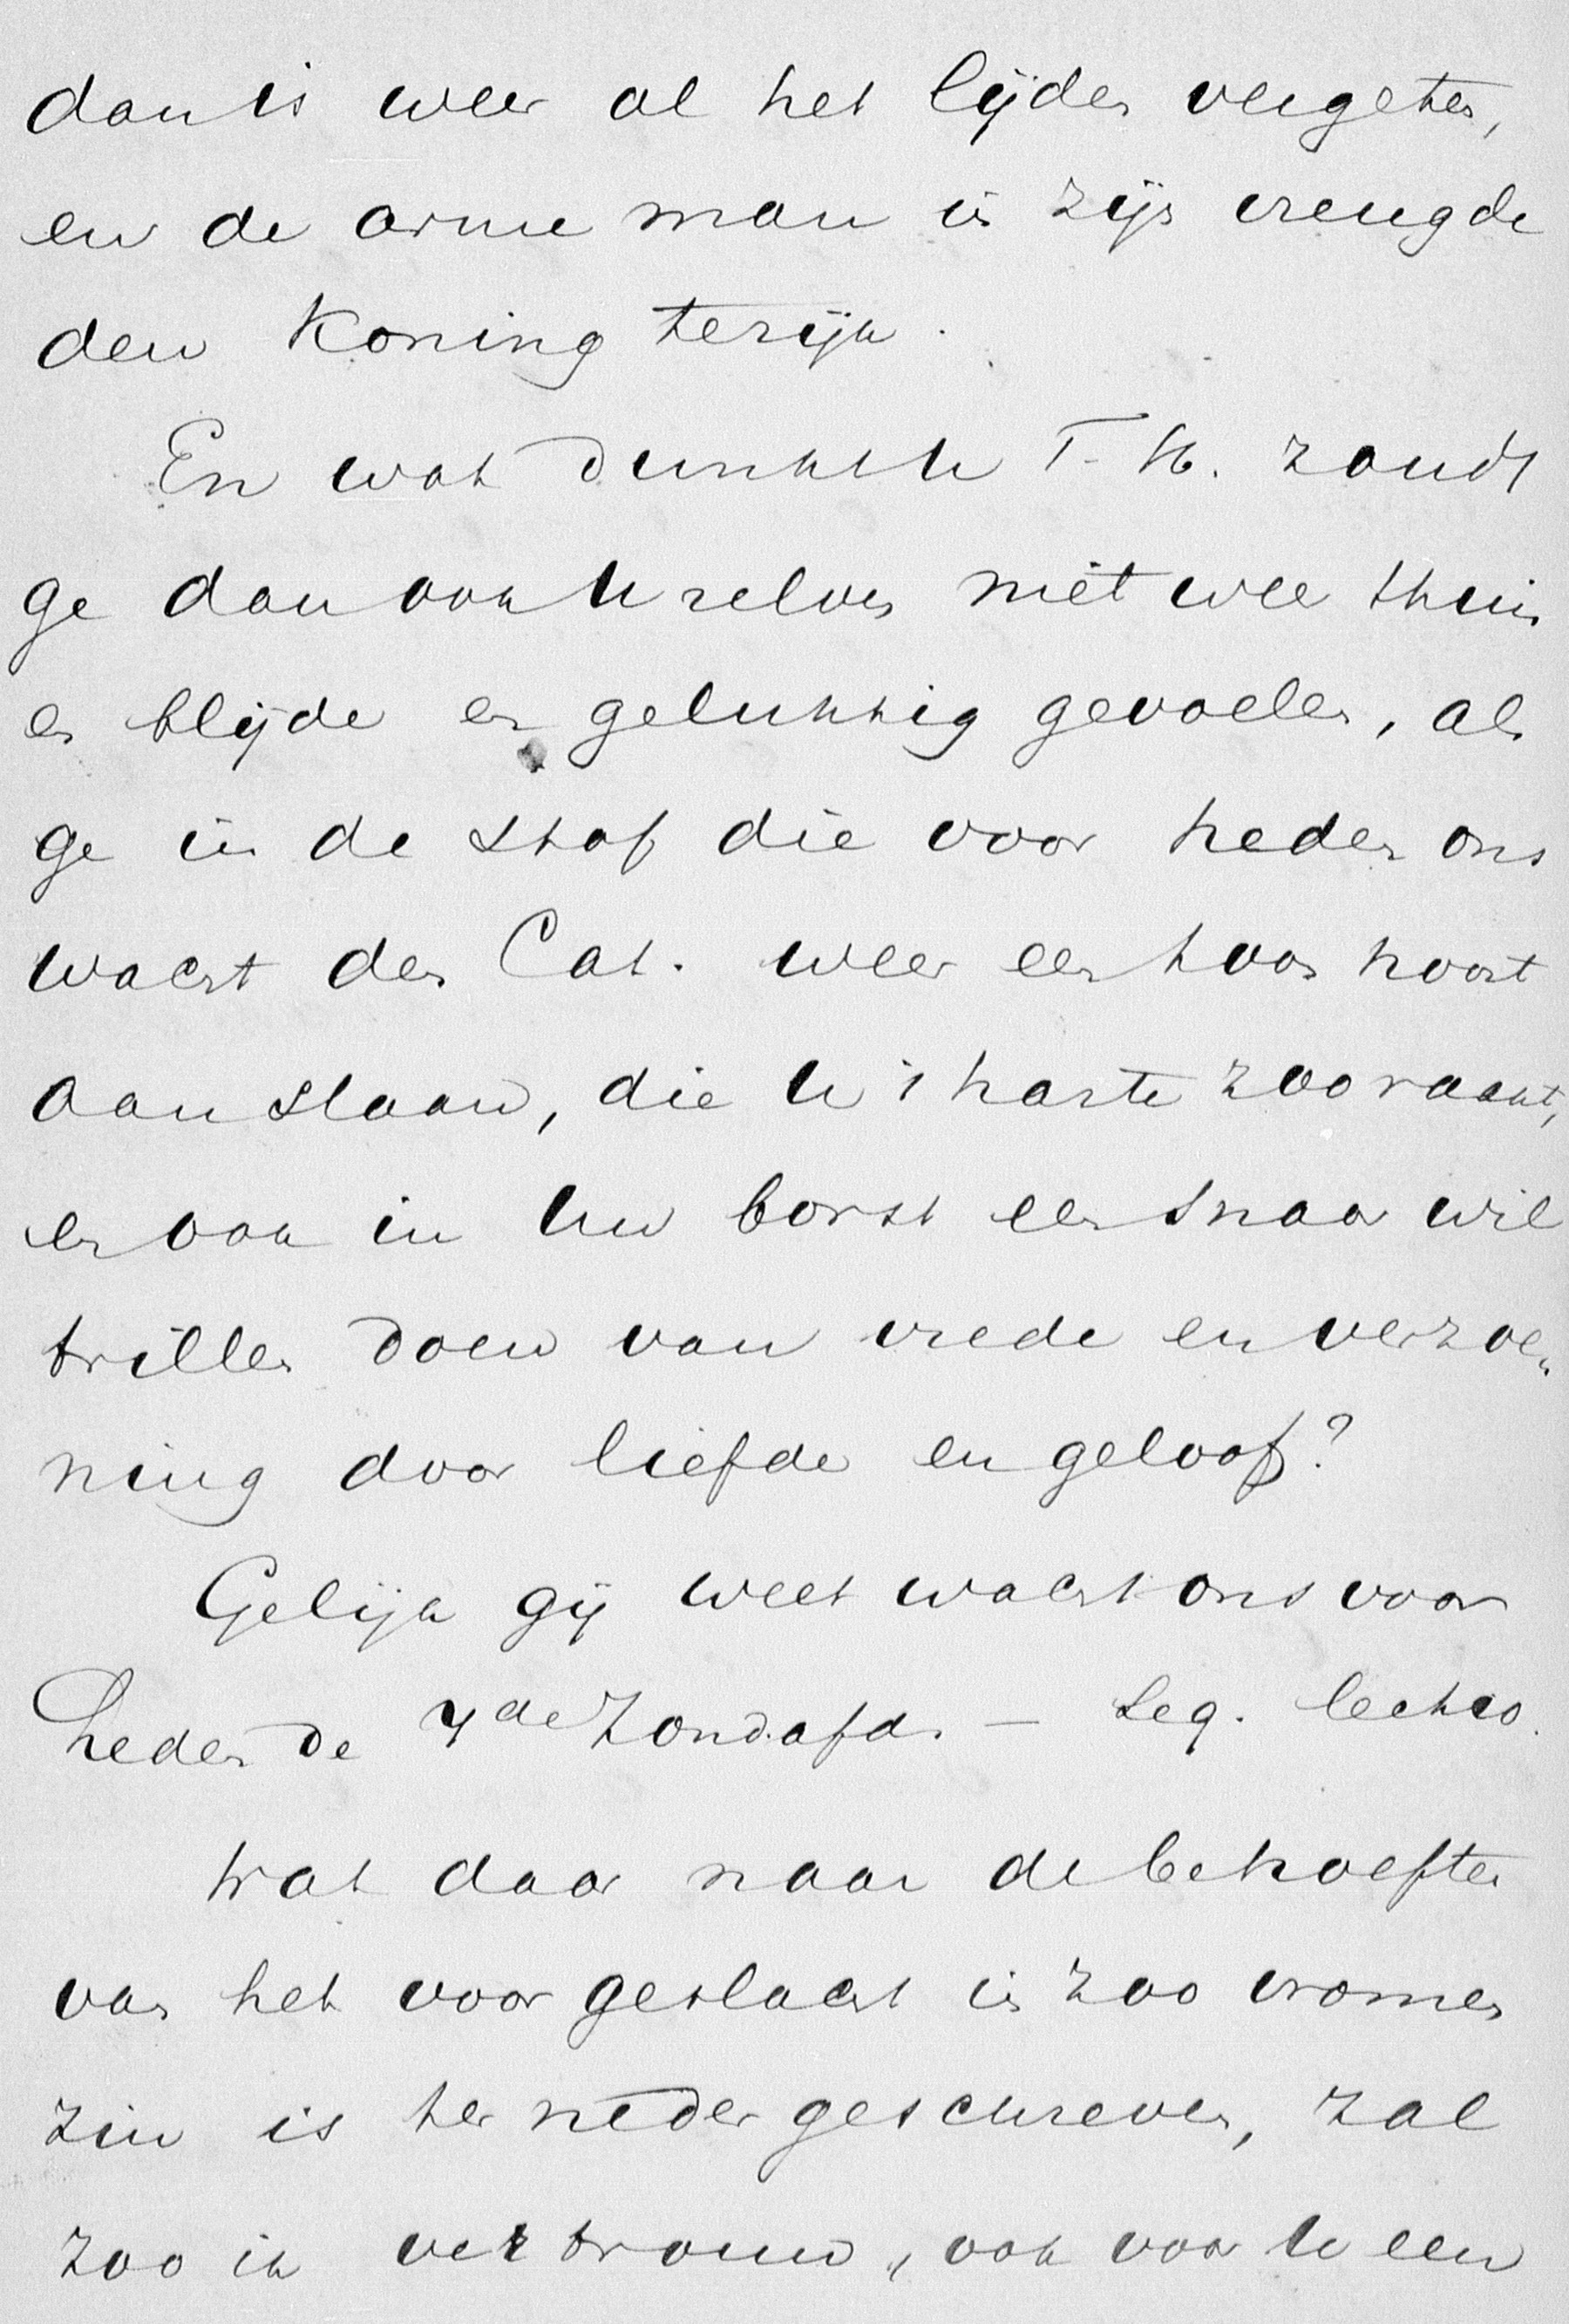 dan is weer al het lijden vergeten,
en de arme man is zijn vreugde
den Koning te rijk.
En wat dunkt U T. H. zoudt
ge dan ook U zelven niet weer thuis
en blijde en gelukkig gevoelen, als
ge in de stof die voor heden ons
wacht den Cat. weer een toon hoort
aan slaan, die U 't harte zoo raakt,
en ook in Uw borst een snaar wil
trillen doen van vrede en verzoe„
ning door liefde en geloof?
Gelijk gij weet wacht ons voor
heden de 7de Zond.afd. — Seq. lectio.
Wat daar naar de behoeften
van het voorgeslacht in zoo vromen
zin is ter neder geschreven, zal
zoo ik vertrouw, ook voor U een